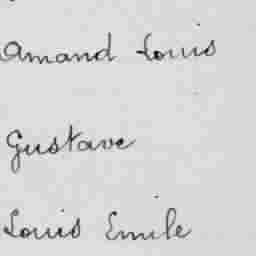 Amand Louis
Gustave
Louis Emile